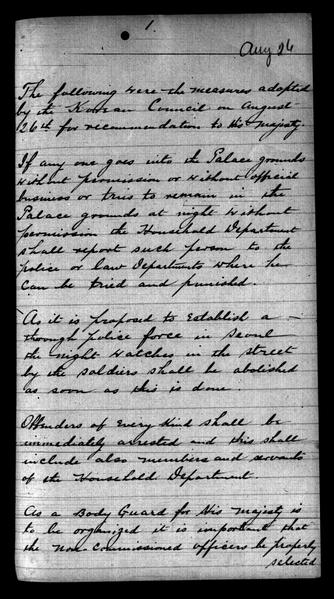 1.
Aug 26
The following were the measures adopted
by the Korean Council on August
26th for recommendation to His Majesty.
If any one goes into the Palace grounds
without permission or without official
business or tries to remain in the
Palace grounds at night without
permission the Household Department
shall report such person to the
police or law Departments where he
can be tried and punished.
As it is proposed to establish a
through police force in Seoul
the night watches in the street
by the soldiers shall be abolished
as soon as this is done.
Offenders of every kind shall be
immediately arrested and this shall
include also members and servants
of the Household Department.
As a Body Guard for His Majesty is
to be organized it is important that
the non-commissioned officers be properly
selected